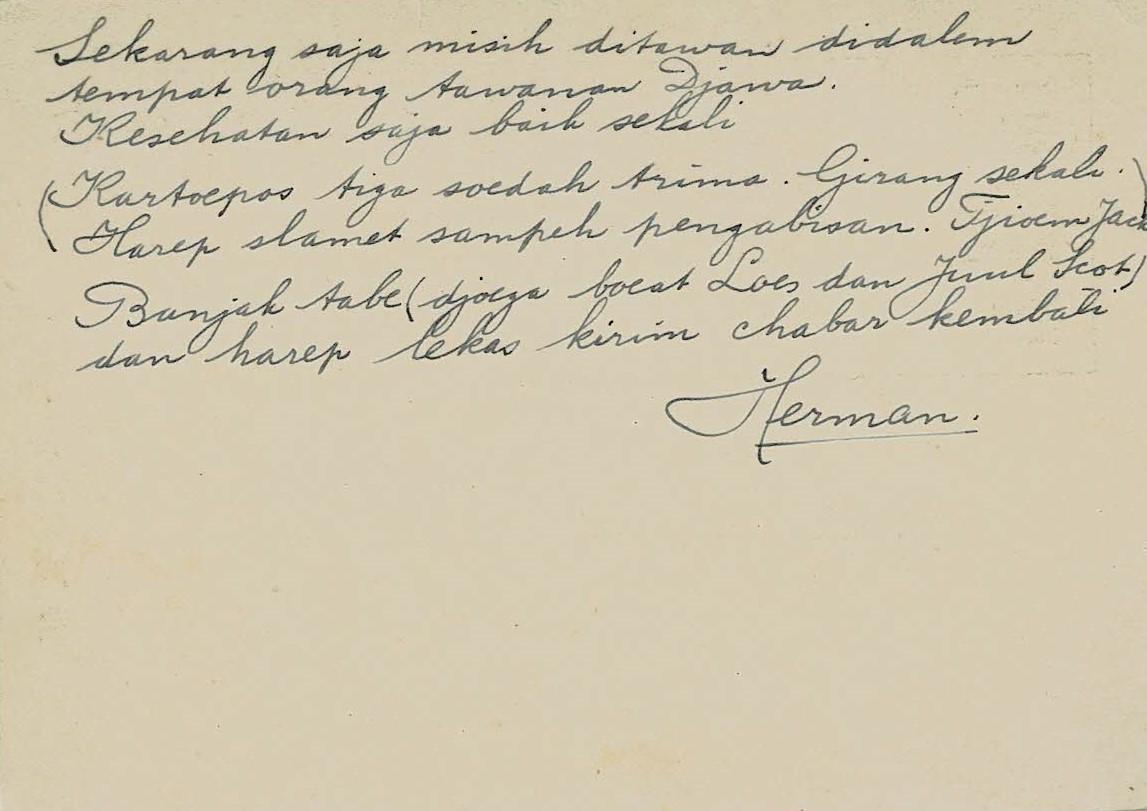 Sekarang saja misih ditawan didalem
tempat orang tawanan Djawa.
Kesehatan saja baik sekali
(Kartoepos tiga soedah trima. Girang sekali.)
Harep slamet sampeh pengabisan. Tjioem Jack
Banjak tabe (djoega boeat Loes dan Juul Scot)
dan harep lekas kirim chabar kembali
Herman.